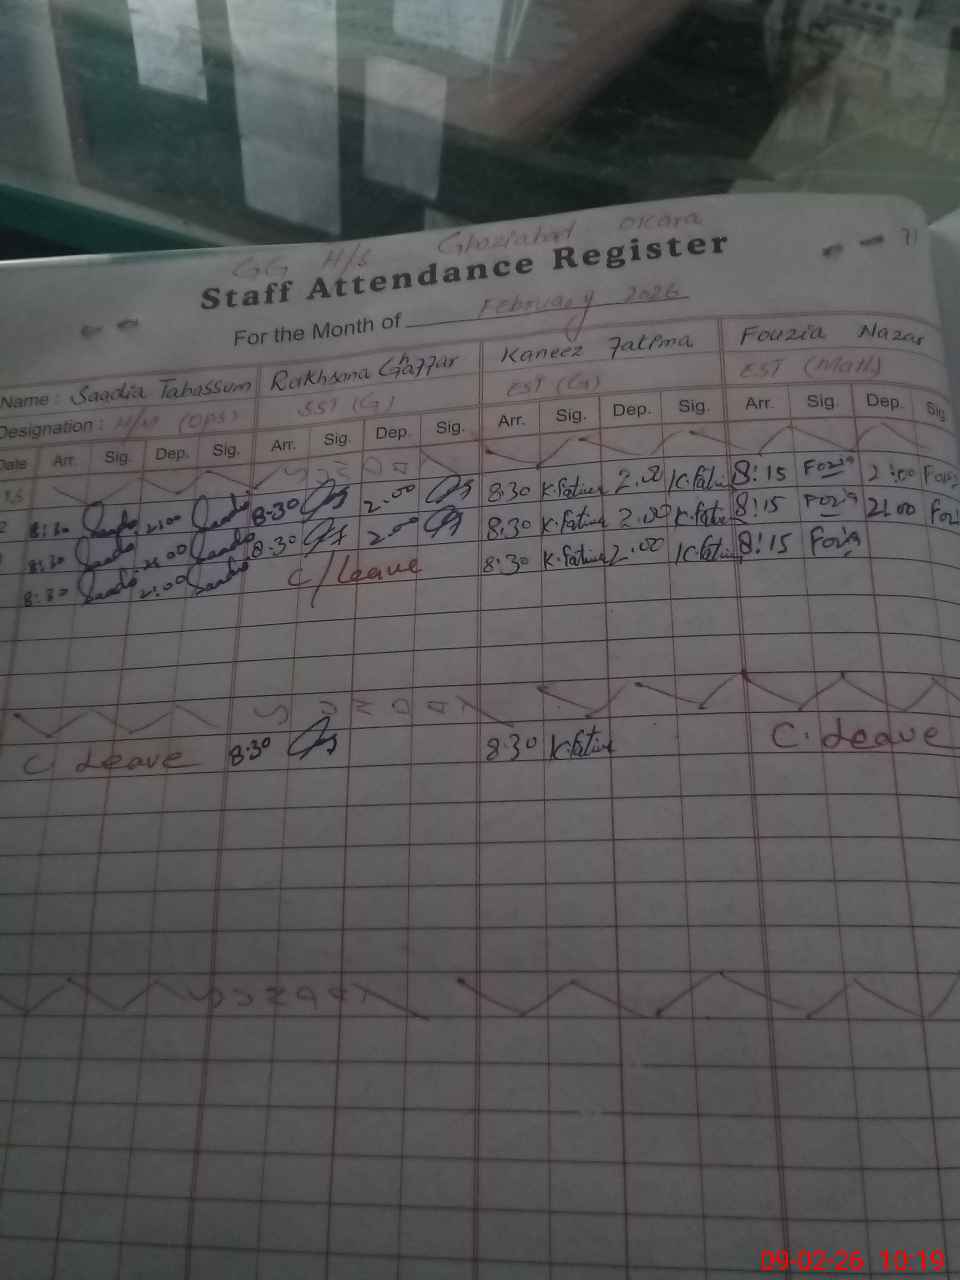 GG H/S Ghaziabad Okara
71
Staff Attendance Register
For the Month of February 2026
Name : Saadia Tabassum Rukhsana Ghaffar Kaneez Fatima Fouzia Nazar
Designation : H/M (OPS) SST (G) EST (G) EST (Math)
Date Arr. Sig. Dep. Sig. Arr. Sig. Dep. Sig. Arr. Sig. Dep. Sig. Arr. Sig. Dep. Sig.
SUNDAY
2 8:30 2:00 8:30 2:00 8:30 K.Fatima 2.00 K.Fatima 8:15 Fozia 2:00
8:30 2:00 8:30 2:00 8:30 K.Fatima 2.00 K.Fatima 8:15 Fozia 2:00
8:30 2:00 C/Leave 8:30 K.Fatima 2.00 K.Fatima 8:15 Fozia
SUNDAY
C. Leave 8:30 8:30 K.Fatima C. Leave
SUNDAY
09-02-26 10:19